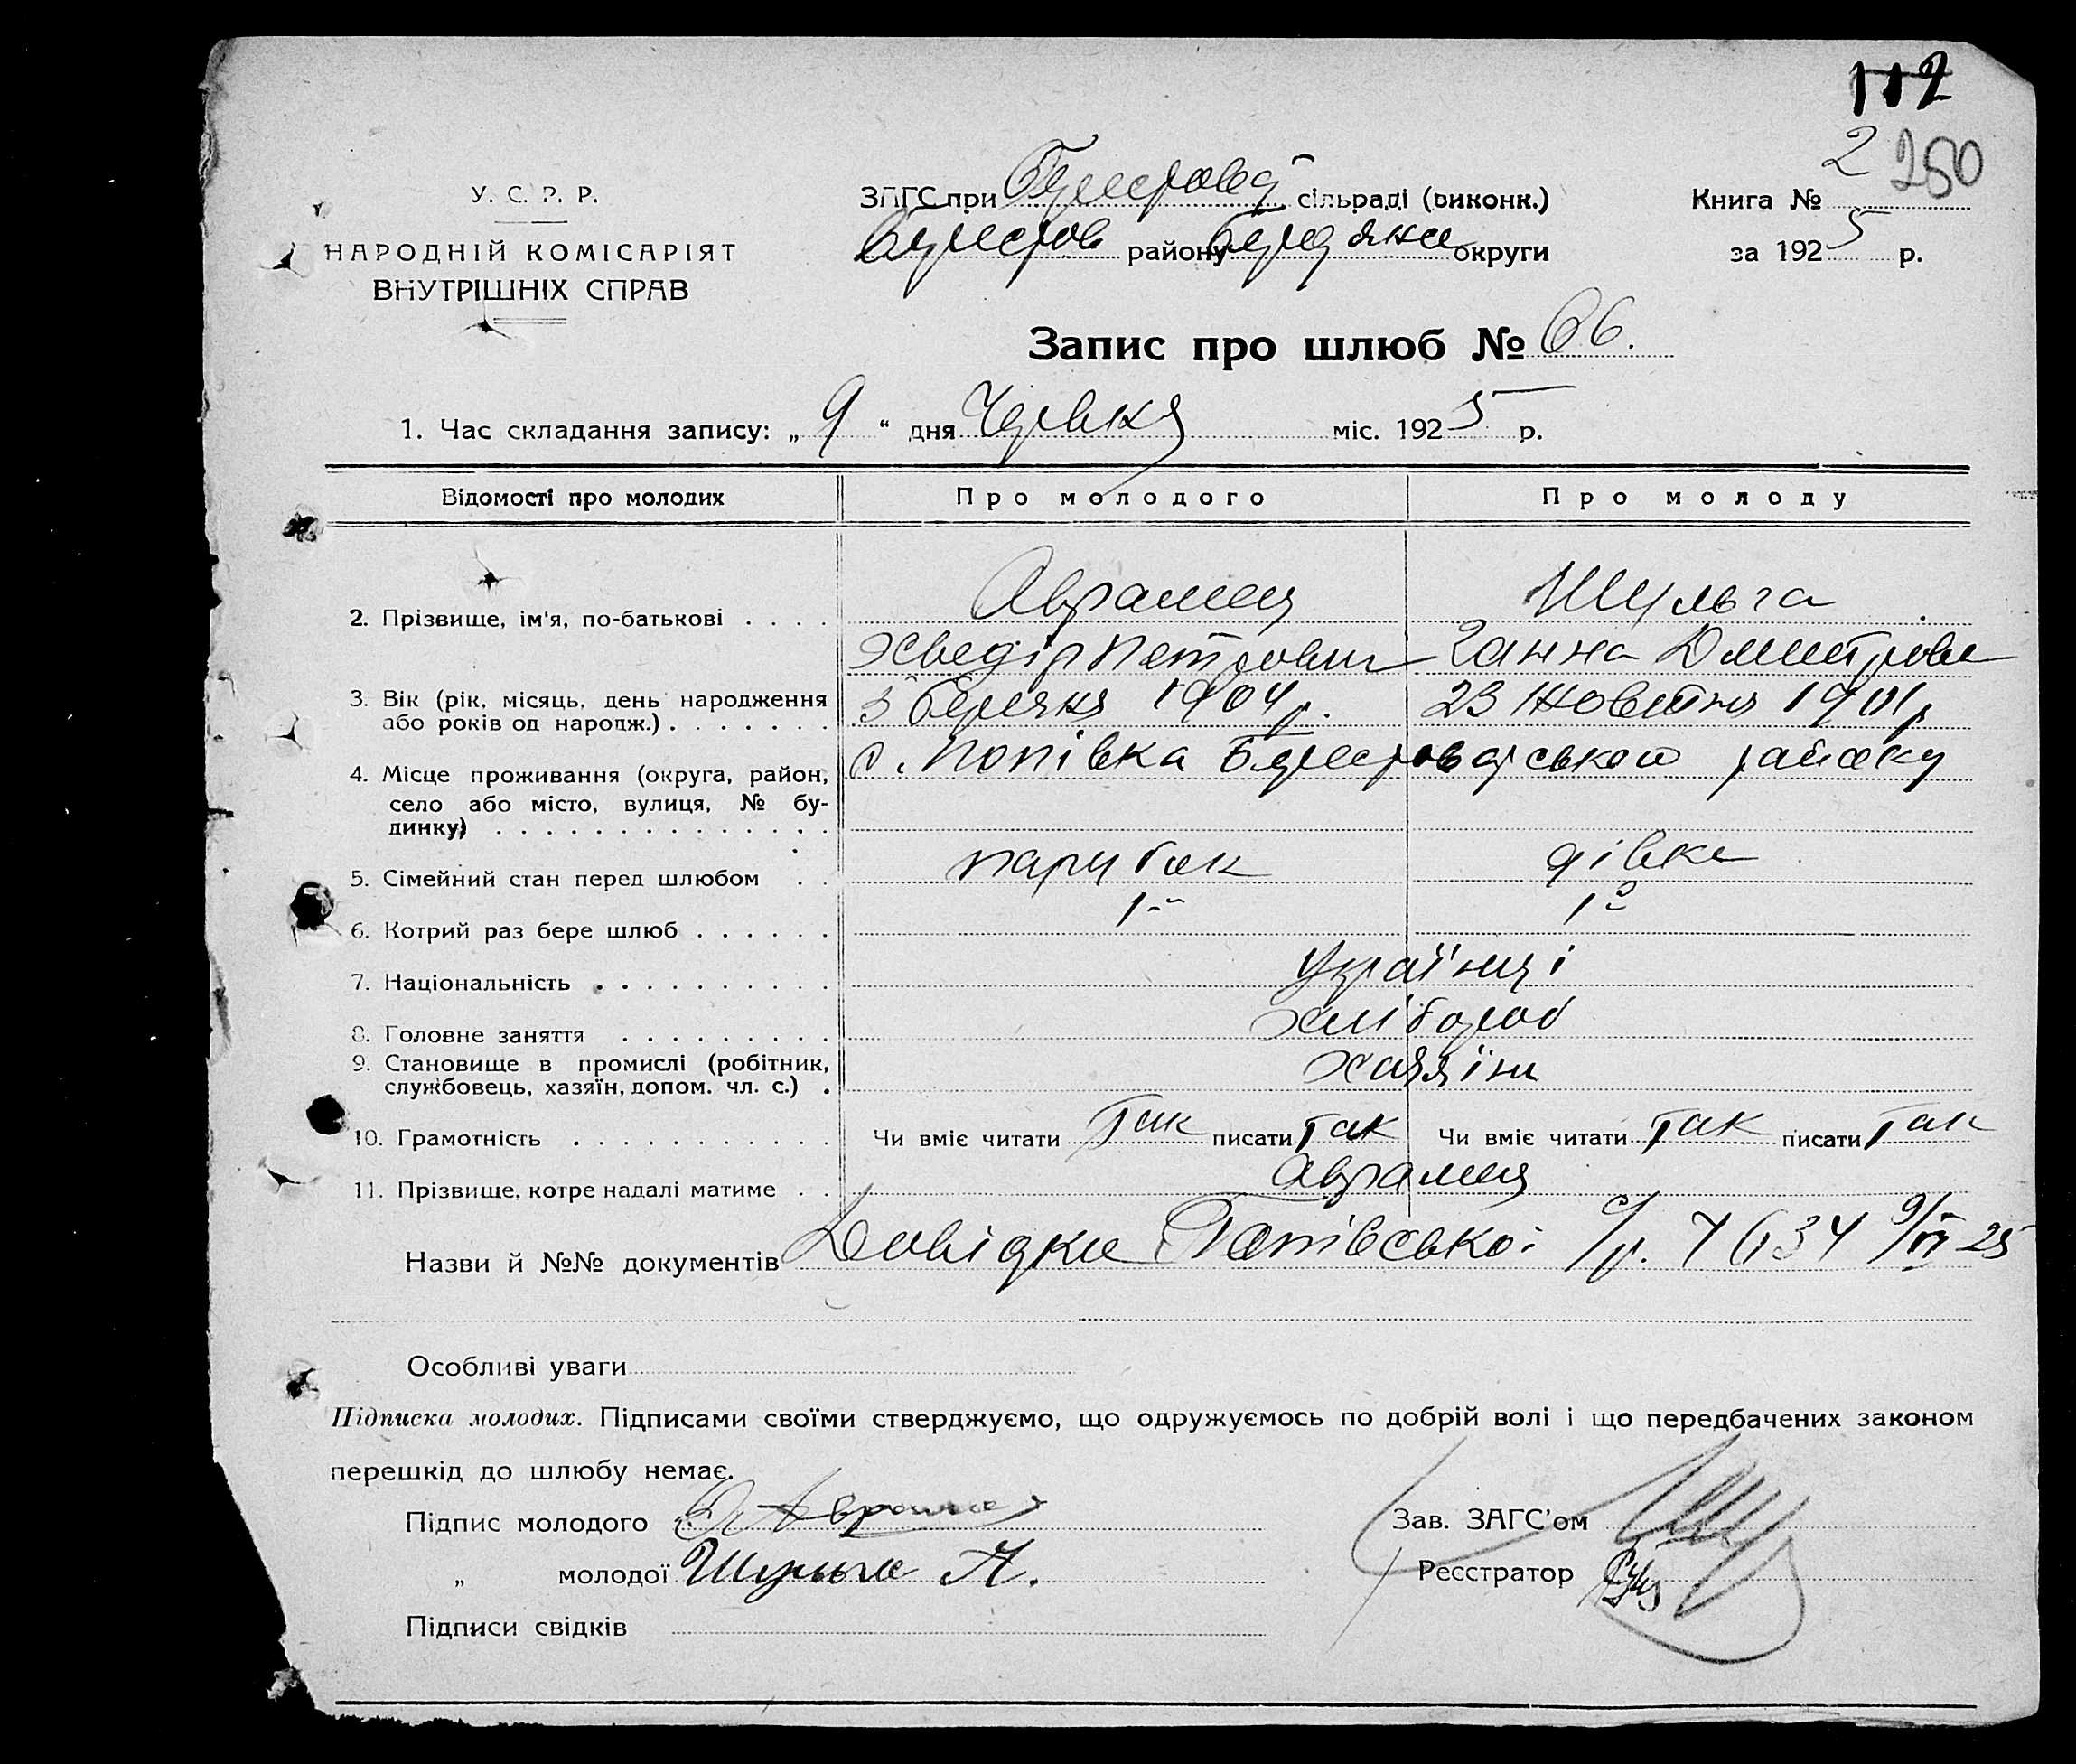 112
2 280
У. С. Р. Р.
НАРОДНІЙ КОМІСАРІЯТ
ВНУТРІШНІХ СПРАВ
ЗАГС при сільраді (виконк.)
району округи
Книга №
за 1925 р.
Запис про шлюб № 66.
1. Час складання запису: „ 9 “ дня Червня міс. 1925 р.
Відомості про молодих Про молодого Про молоду
2. Прізвище, ім'я, по-батькові . . . . Аврамец Шульга
Хведір Петрович Ганна Дмитров
3. Вік (рік, місяць, день народження або років од народж.) . . . . . . . 3 березня 1904 р. 23 Жовтня 1901 р
4. Місце проживання (округа, район, село або місто, вулиця, № будинку) . . . . . . . . . . . . . . с. Попівка району
5. Сімейний стан перед шлюбом . . парубок дівка
6. Котрий раз бере шлюб . . . . . . 1й 1й
7. Національність . . . . . . . . . . Українці
8. Головне заняття . . . . . . . . . хлібороб
9. Становище в промислі (робітник, службовець, хазяїн, допом. чл. с.) . хазяїни
10. Грамотність . . . . . . . . . . . Чи вміє читати Так писати Так Чи вміє читати Так писати Так
11. Прізвище, котре надалі матиме . . Аврамец
Назви й №№ документів Довідка Попівської с/р. 9/VI 25
Особливі уваги
Підписка молодих. Підписами своїми стверджуємо, що одружуємось по добрій волі і що передбачених законом
перешкід до шлюбу немає.
Підпис молодого
Зав. ЗАГС’ом
„ молодої Шульга А.
Реєстратор
Підписи свідків